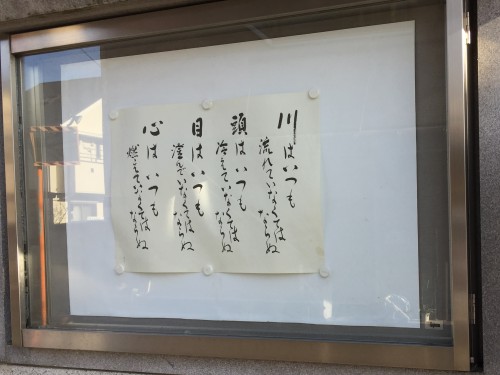 川はいつも
流れていなくては
ならぬ
頭はいつも
冷えていなくては
ならぬ
目はいつも
澄んでいなくては
ならぬ
心はいつも
燃えていなくては
ならぬ